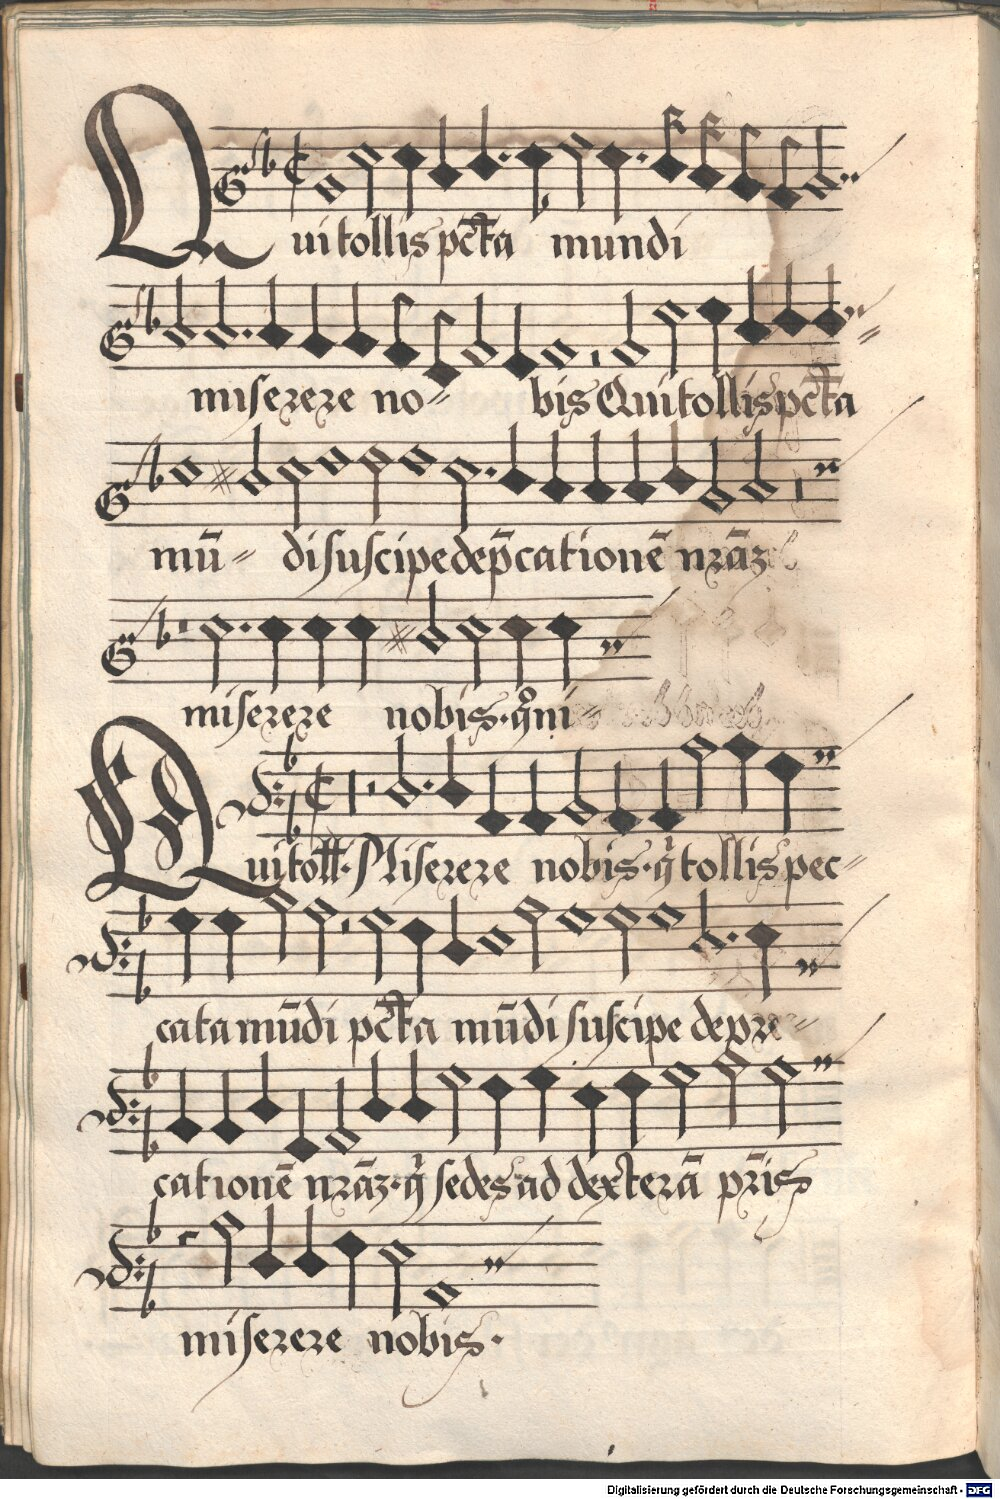 Qui tollis pc̄ta mundi
miserere no= bis Qui tollis pc̄ta
mū= di suscipe dep̄cationē nrāz
miserere nobis · qm̄
Qui toll · Miserere nobis · q̄ tollis pec=
cata mūdi pc̄ta mūdi suscipe depre=
cationē nrāz · q̄ sedes ad dexterā pr̄is
miserere nobis ·
Digitalisierung gefördert durch die Deutsche Forschungsgemeinschaft - DFG